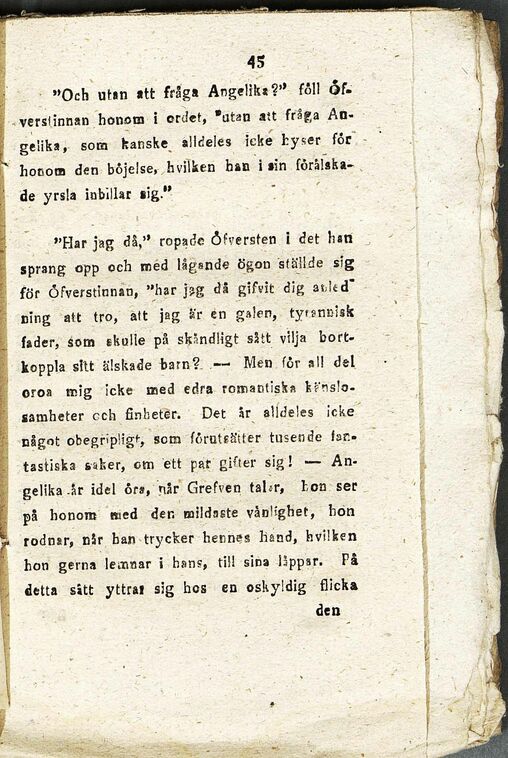 45
"Och utan att fråga Angelika?" föll Öf-
verstinnan honom i ordet, "utan att fråga An-
gelika, som kanske alldeles icke hyser för
honom den böjelse, hvilken han i sin förälska-
de yrsla inbillar sig."
"Har jag då," ropade Öfversten i det han
sprang opp och med lågande ögon ställde sig
för Öfverstinnan, "har jag då gifvit dig anled-
ning att tro, att jag är en galen, tyrannisk
fader, som skulle på skändligt sätt vilja bort-
koppla sitt älskade barn? — Men för all del
oroa mig icke med edra romantiska känslo-
samheter och finheter. Det är alldeles icke
något obegripligt, som förutsätter tusende fan-
tastiska saker, om ett par gifter sig! — An-
gelika är idel öra, når Grefven talar, hon ser
på honom med den mildaste vänlighet, hon
rodnar, når han trycker hennes hand, hvilken
hon gerna lemnar i hans, till sina läppar. På
detta sätt yttrar sig hos en oskyldig flicka
den